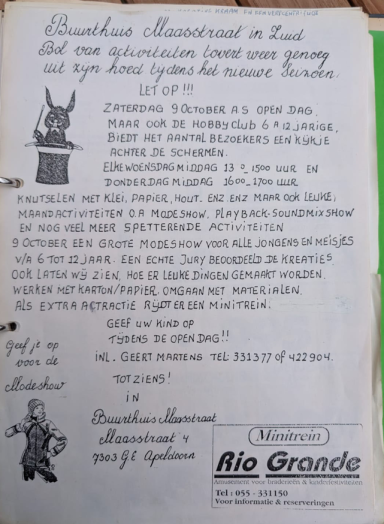 Buurthuis Maasstraat in Zuid
Bol van activiteiten tovert weer genoeg
uit zijn hoed tijdens het nieuwe seizoen.
LET OP !!!
ZATERDAG 9 OCTOBER A.S OPEN DAG.
MAAR OOK DE HOBBYCLUB 6 A 12 JARIGE,
BIEDT HET AANTAL BEZOEKERS EEN KIJKJE
ACHTER DE SCHERMEN.
ELKE WOENSDAG MIDDAG 13 00-1500 UUR EN
DONDERDAG MIDDAG 1600-1700 UUR
KNUTSELEN MET KLEI, PAPIER, HOUT. ENZ ENZ MAAR OOK LEUKE,
MAANDACTIVITEITEN O.A MODESHOW, PLAYBACK-SOUNDMIXSHOW
EN NOG VEEL MEER SPETTERENDE ACTIVITEITEN
9 OCTOBER EEN GROTE MODESHOW VOOR ALLE JONGENS EN MEISJES
V/A 6 TOT 12 JAAR. EEN ECHTE JURY BEOORDEELD DE KREATIES
OOK LATEN WIJ ZIEN, HOE ER LEUKE DINGEN GEMAAKT WORDEN.
WERKEN MET KARTON/PAPIER. OMGAAN MET MATERIALEN.
ALS EXTRA ATTRACTIE RIJDT ER EEN MINITREIN.
GEEF UW KIND OP
TIJDENS DE OPEN DAG!!
INL. GEERT MARTENS TEL: 331377 OF 422904.
Geef je op
voor de
Modeshow
TOT ZIENS!
IN
Buurthuis Maasstraat
Maasstraat 4
7303 GE Apeldoorn
Minitrein
Rio Grande
Amusement voor braderieën & kinderfestiviteiten
Tel : 055 - 331150
Voor informatie & reserveringen